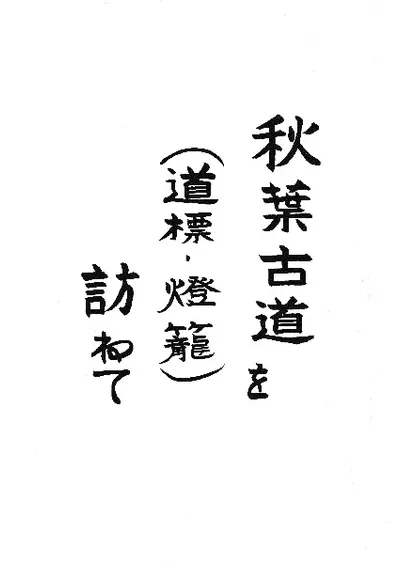 秋葉古道を
(道標・燈籠)
訪ねて